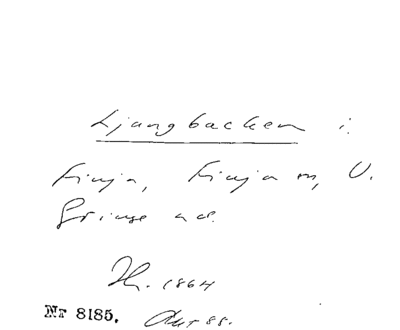 Ljungbacken i.
Finja, Finja sn, V.
Göinge hd.
1864
Nr 8185. Akt 88.